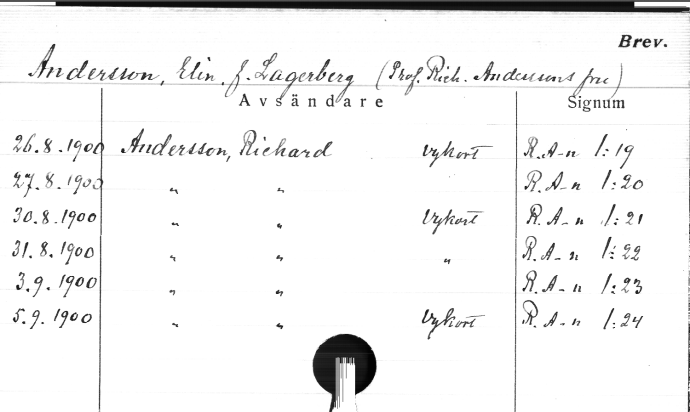 Brev.
Andersson, Elin, f. Lagerberg (Prof. Rich. Anderssons fru)
Avsändare Signum
26.8.1900 Andersson, Richard vykort R. A-n 1:19
27.8.1900 " " R. A-n 1:20
30.8.1900 " " vykort R. A-n 1:21
31.8.1900 " " " R. A-n 1:22
3.9.1900 " " R. A-n 1:23
5.9.1900 " " vykort R. A-n 1:24